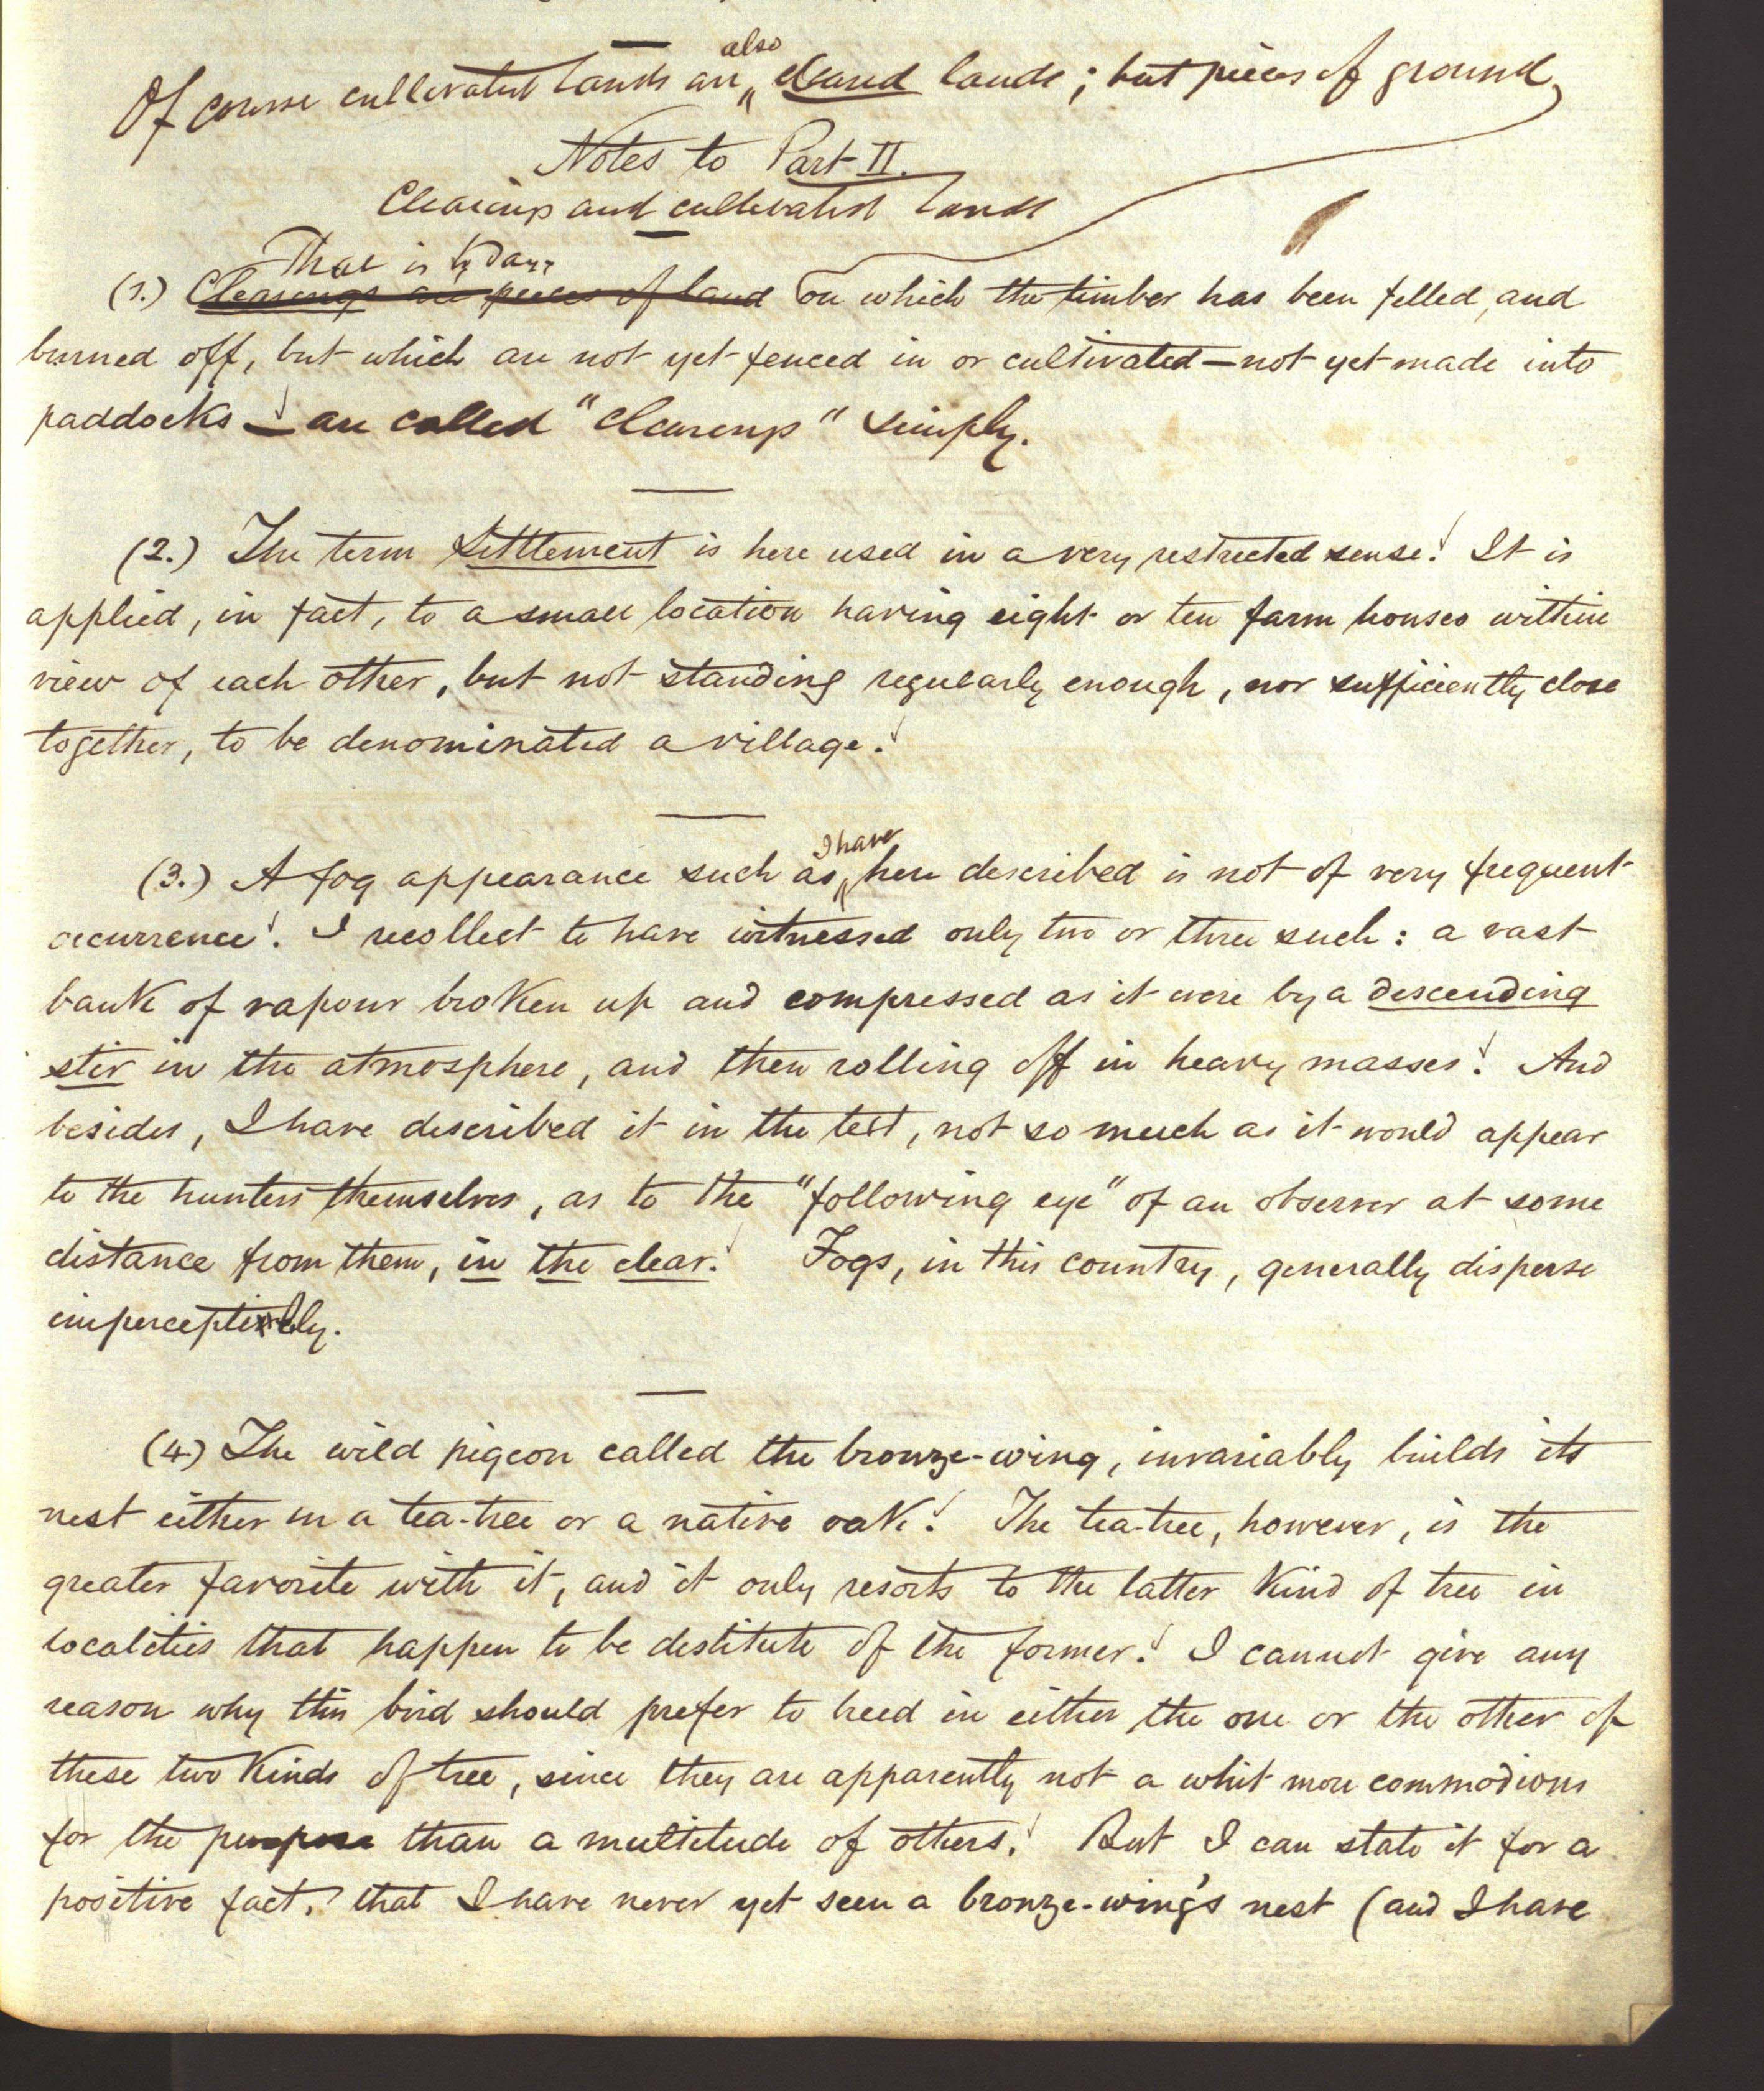 Of course cultivated lands are also cleared lands; but pieces of ground
Notes to Part II.
Clearings and cultivated lands
That is to say
(1.) Clearings are pieces of land on which the timber has been felled, and
burned off, but which are not yet fenced in or cultivated—not yet made into
paddocks — are called "clearings" simply.
(2.) The term Settlement is here used in a very restricted sense. It is
applied, in fact, to a small location having eight or ten farm houses within
view of each other, but not standing regularly enough, nor sufficiently close
together, to be denominated a village.
(3.) A fog appearance such as I have here described is not of very frequent
occurrence. I recollect to have witnessed only two or three such: a vast
bank of vapour broken up and compressed as it were by a descending
stir in the atmosphere, and then rolling off in heavy masses. And
besides, I have described it in the text, not so much as it would appear
to the hunters themselves, as to the "following eye" of an observer at some
distance from them, in the clear. Fogs, in this country, generally disperse
imperceptibly.
(4.) The wild pigeon called the bronze-wing, invariably builds its
nest either in a tea-tree or a native oak. The tea-tree, however, is the
greater favorite with it, and it only resorts to the latter kind of tree in
localities that happen to be destitute of the former. I cannot give any
reason why this bird should prefer to breed in either the one or the other of
these two kinds of tree, since they are apparently not a whit more commodious
for the purpose than a multitude of others. But I can state it for a
positive fact, that I have never yet seen a bronze-wing's nest (and I have